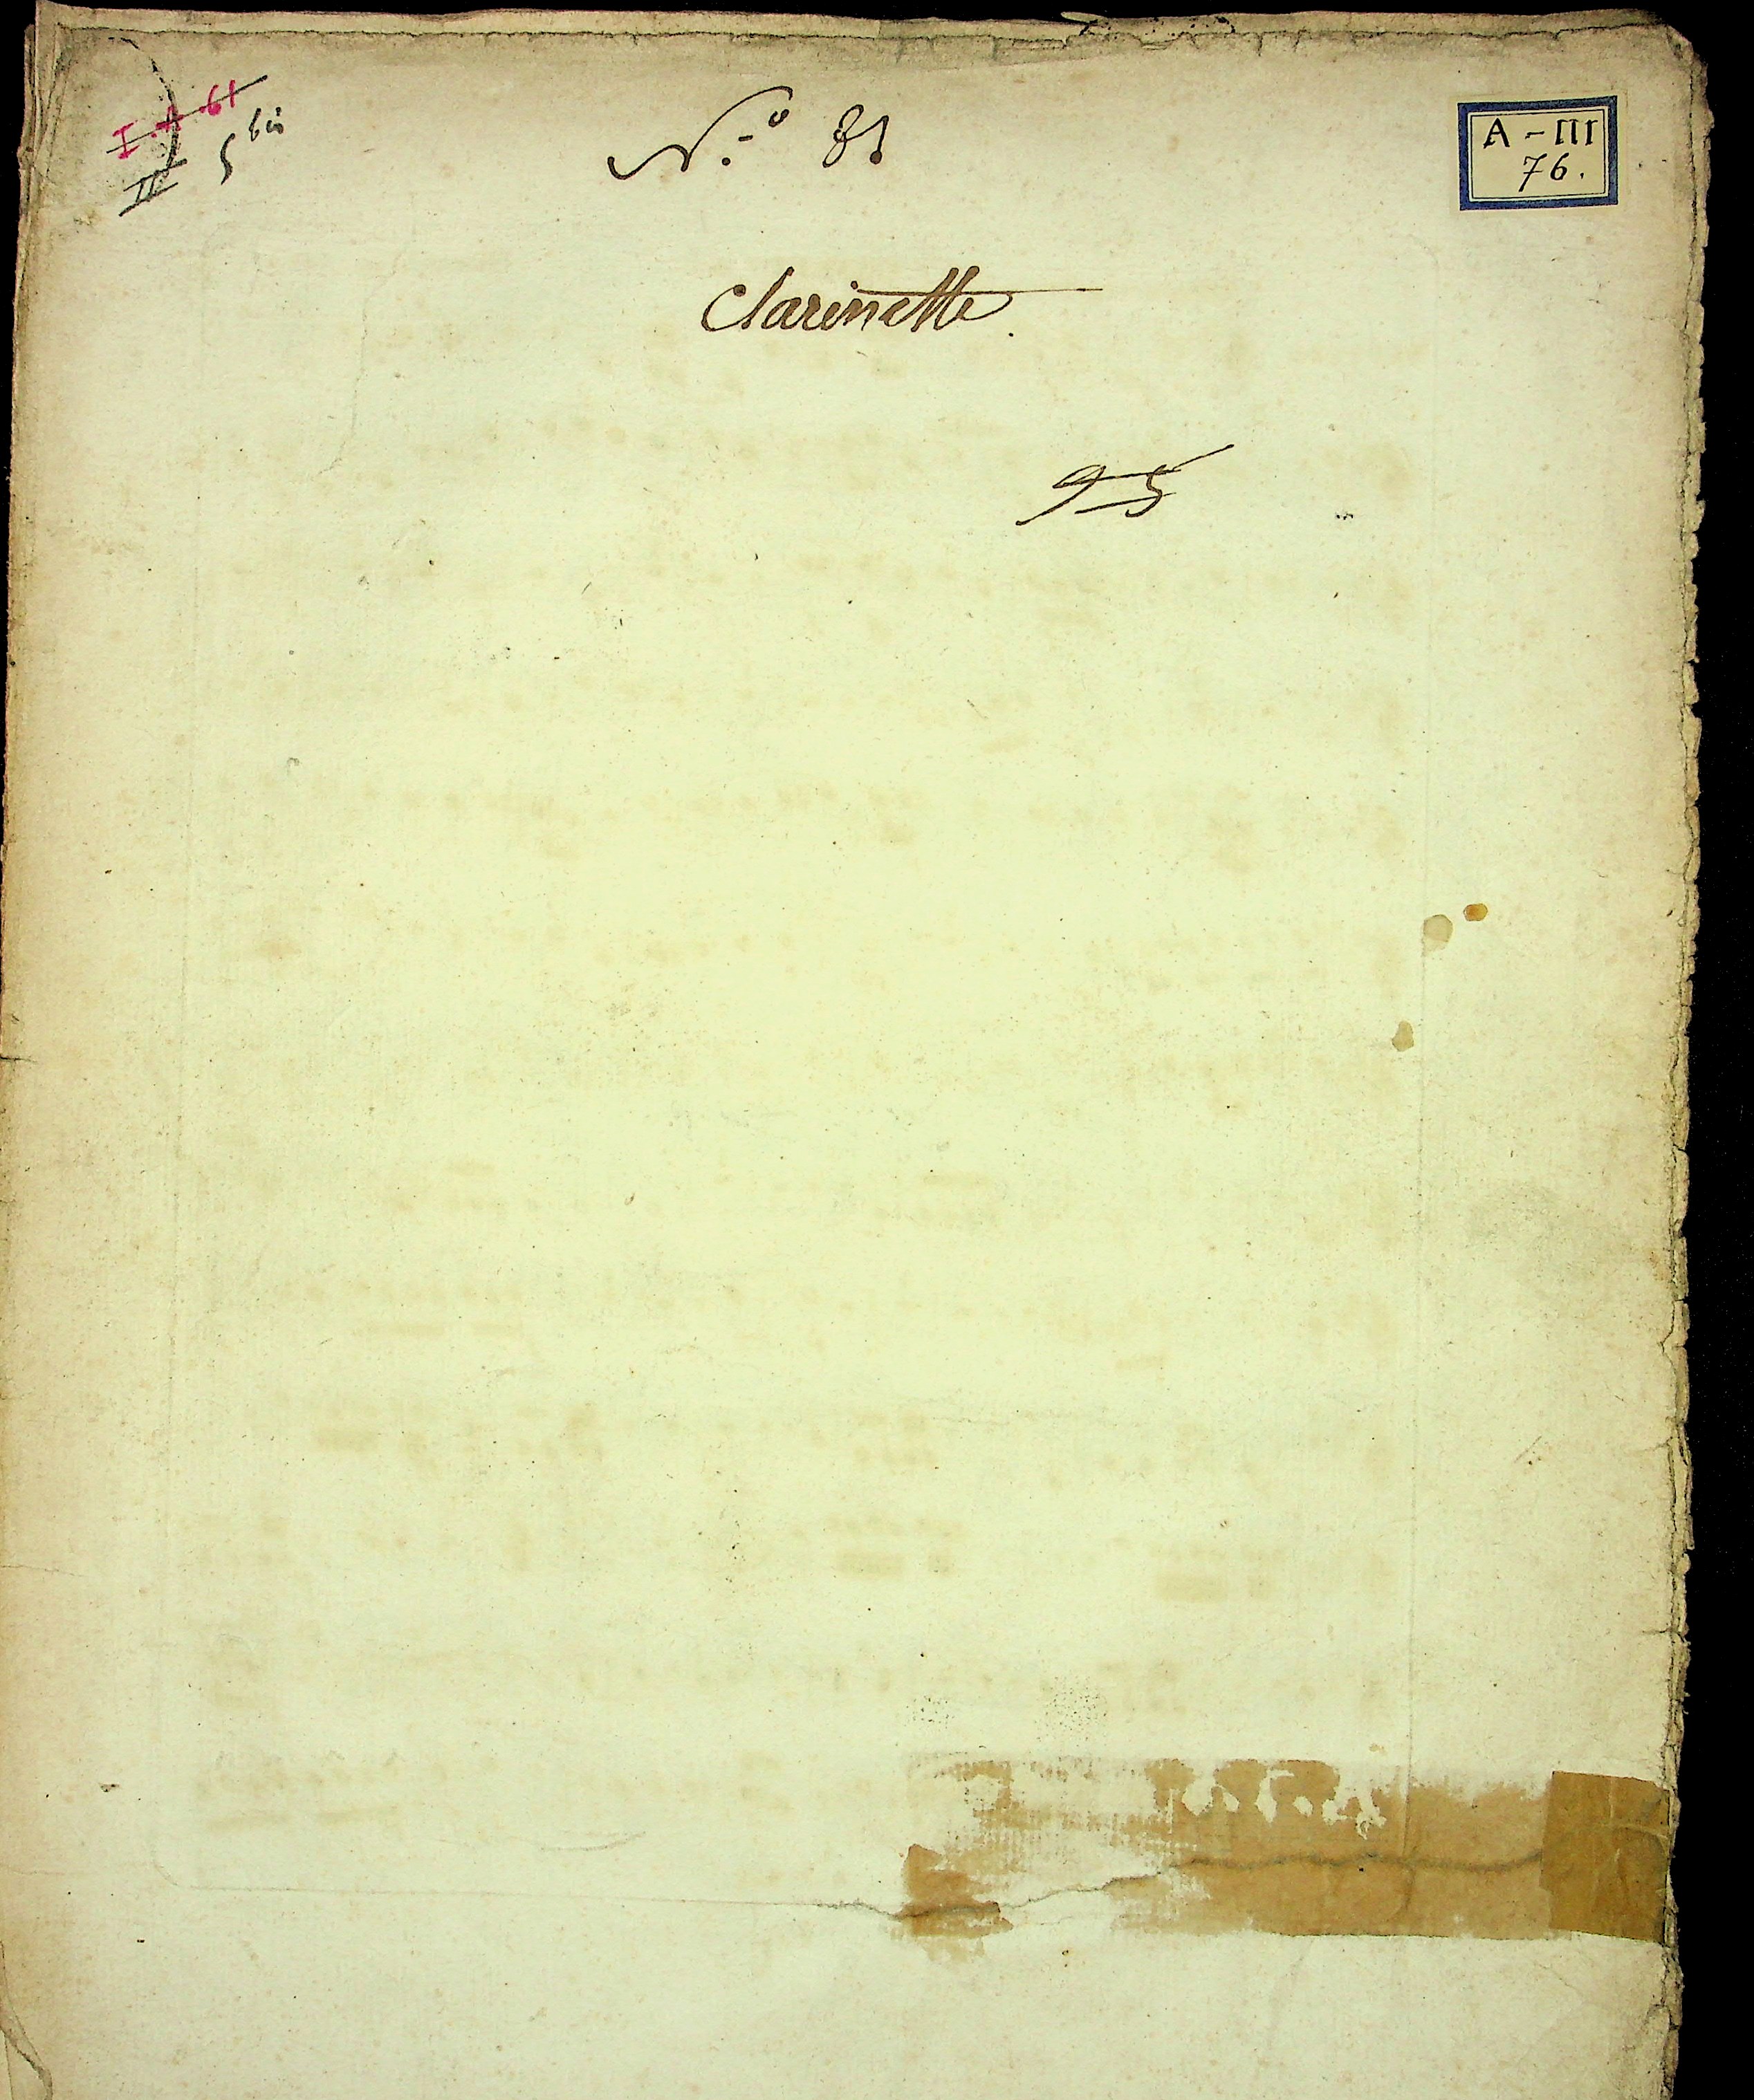 I. A. 61
II 5 bis
N.º 81
A - III
76.
Clarinette.
95